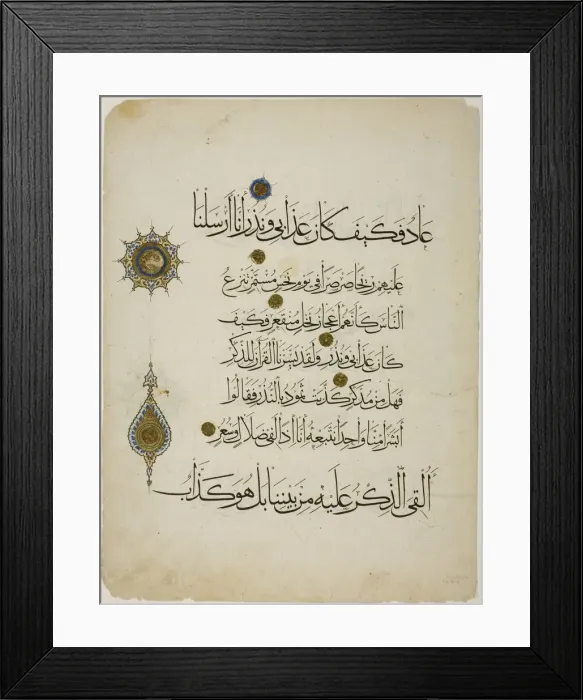 عاد فكيف كان عذابي ونذر انا ارسلنا
عليهم ريحا صرصرا في يوم نحس مستمر تنزع
الناس كانهم اعجاز نخل منقعر فكيف
كان عذابي ونذر ولقد يسرنا القرآن للذكر
فهل من مدكر كذبت ثمود بالنذر فقالوا
ابشرا منا واحدا نتبعه انا اذا لفي ضلال وسعر
أألقي الذكر عليه من بيننا بل هو كذاب